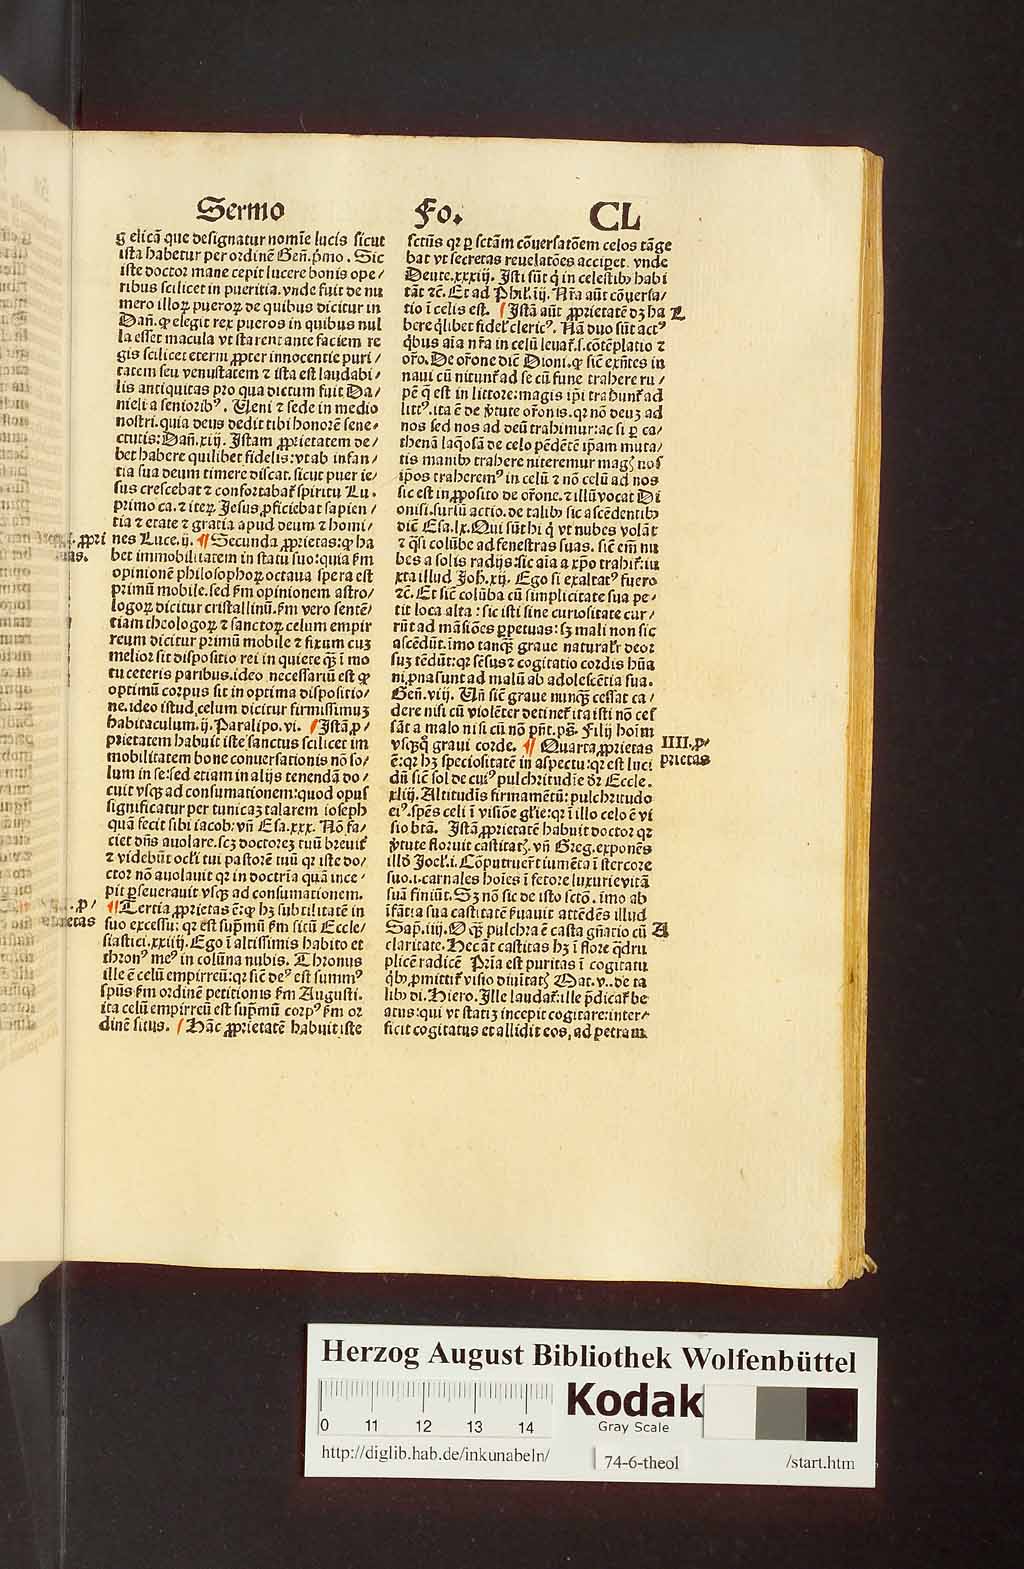 Sermo Fo. CL
g̃ elicã que designatur nomĩe lucis sicut
ista habetur per ordinẽ Geñ. p̃mo. Sic
iste doctor mane cepit lucere bonis ope/
ribus scilicet in pueritia. vnde fuit de nu
mero illoꝝ pueroꝝ de quibus dicitur in
Dañ. ꝙ elegit rex pueros in quibus nul
la esset macula vt starent ante faciem re
gis scilicet eterni ꝓpter innocentie puri/
tatem seu venustatem ⁊ ista est laudabi/
lis antiquitas pro qua dictum fuit Da/
nieli a seniorib⁹. Ueni ⁊ sede in medio
nostri. quia deus dedit tibi honorẽ sene/
ctutis: Dañ. xiij. Istam ꝓprietatem de/
bet habere quilibet fidelis: vt ab infan/
tia sua deum timere discat. sicut puer ie/
sus crescebat ⁊ confortabat᷑ spiritu Lu.
primo ca. ⁊ iteꝝ Jesus ꝓficiebat sapien/
tia ⁊ etate ⁊ gratia apud deum ⁊ homi/
nes Luce. ij. ¶ Secunda ꝓprietas: ꝙ ha
bet immobilitatem in statu suo: quia ẜm
opinionẽ philosophoꝝ octaua spera est
primũ mobile. sed ẜm opinionem astro/
logoꝝ dicitur cristallinũ. ẜm vero sentẽ/
tiam theologoꝝ ⁊ sanctoꝝ celum empir
reum dicitur primũ mobile ⁊ fixum cuꝫ
melior sit dispositio rei in quiete q̃ꝫ ĩ mo
tu ceteris paribus. ideo necessariũ est ꝙ
optimũ corpus sit in optima dispositio/
ne. ideo istud celum dicitur firmissimuꝫ
habitaculum. ij. Paralipo. vi. Istã ꝓ/
prietatem habuit iste sanctus scilicet im
mobilitatem bone conuersationis nõ so/
lum in se: sed etiam in alijs tenendã do/
cuit vsqꝫ ad consumationem: quod opus
significatur per tunicaꝫ talarem ioseph
quã fecit sibi iacob: vñ Esa. xxx. Nõ fa/
ciet dñs auolare. scꝫ doctoreꝫ tuũ breuit᷑
⁊ videbũt ocl'i tui pastorẽ tuũ qꝛ iste do/
ctor nõ auolauit qꝛ in doctrĩa quã ince/
pit ꝑseuerauit vsqꝫ ad consumationem.
¶ Tertia ꝓprietas ẽ: ꝙ hꝫ subtilitatẽ in
suo excessu: qꝛ est sup̃mũ ẜm sitũ Eccle/
siastici. xxiiij. Ego ĩ altissimis habito et
thron⁹ me⁹ in colũna nubis. Thronus
ille ẽ celũ empirreũ: qꝛ sicẽ de⁹ est summ⁹
spũs ẜm ordinẽ petitionis ẜm Augusti.
ita celũ empirreũ est sup̃mũ corp⁹ ẜm or
dinẽ situs. Hãc ꝓprietatẽ habuit iste
sctũs qꝛ ꝑ sctãm cõuersatõem celos tãge
bat vt secretas reuelatões acciperet. vnde
Deute. xxxiij. Isti sũt q̃ in celestibꝫ habi
tãt ⁊c̃. Et ad Phil'. iij. Nr̃a aũt cõuersa/
tio ĩ celis est. Istã aũt ꝓprietatẽ dꝫ ha
bere q̃libet fidel' cleric⁹. Nã duo sũt act⁹
q̃bus aĩa nr̃a in celũ leuat᷑. s. cõtẽplatio ⁊
oro. De orõne diẽ Dioni. ꝙ sicẽ exñtes in
naui cũ nitunt᷑ ad se cũ fune trahere ru/
pẽ q̃ est in littore: magis ip̃i trahunt᷑ ad
litt⁹. ita ẽ de ꝟtute orõnis. qꝛ nõ deuꝫ ad
nos sed nos ad deũ trahimur: ac si ꝑ ca/
thenã laq̃osã de celo pẽdẽtẽ ip̃am muta/
tis manibꝫ trahere niteremur magꝭ nos
ip̃os traherem⁹ in celũ ⁊ nõ celũ ad nos
sic est in ꝓposito de orõne. ⁊ illũ vocat Di
onisi. suriũ actio. de talibꝫ sic ascẽdentibꝫ
diẽ Esa. lx. Qui sũt hi q̃ vt nubes volãt
⁊ q̃si colũbe ad fenestras suas. sicẽ em̃ nu
bes a solis radijs: sic aĩa a xp̃o trahit᷑. iu
xta illud Joh̃. xij. Ego si exaltat⁹ fuero
⁊c̃. Et sicẽ colũba cũ simplicitate sua pe/
tit loca alta: sic isti sine curiositate cur/
rũt ad mãsiões ꝑpetuas: sꝫ mali non sic
ascẽdũt. ĩmo tanq̃ꝫ graue naturalr̃ deor
suꝫ tẽdũt: qꝛ sẽsus ⁊ cogitatio cordis hũa
ni, pna sunt ad malũ ab adolescẽtia sua.
Geñ. viij. Uñ sicẽ graue nunq̃ꝫ cessat ca/
dere nisi cũ violẽter detinet᷑ ita isti nõ ces
sãt a malo nisi cũ nõ pñt. ps̃. Filij hoĩm
vsqꝫq̃ graui corde. ¶ Quarta ꝓprietas
ẽ: qꝛ hꝫ speciositatẽ in aspectu: qꝛ est luci
dũ sicẽ sol de cui⁹ pulchritudĩe dr̃ Eccle.
xliij. Altitudĩs firmamẽtũ: pulchritudo
ei⁹. spẽs celi ĩ visiõe gl'ie: qꝛ ĩ illo celo ẽ vi
sio btã. Istã ꝓprietatẽ habuit doctor qꝛ
ꝟtute floruit castitatꝭ. vñ Greg. exponẽs
illð Joel'. i. Cõputruer̃t iumẽta ĩ stercore
suo. i. carnales hoĩes ĩ fetore luxurie vitã
suã finiũt. Sꝫ nõ sic de isto sctõ. ĩmo ab
ĩfãtia sua castitatẽ ẜuauit attẽdẽs illud
Sap̃. iiij. O q̃ꝫ pulchra ẽ casta gñatio cũ
claritate. Hec aũt castitas hꝫ ĩ flore q̃dru
plicẽ radicẽ Prĩa est puritas ĩ cogitatu
q̃bꝫ ꝓmittit᷑ visio diuĩtatꝭ Mat. v.. de ta
libꝫ di. Hiero. Ille laudat᷑: ille p̃dicat᷑ be
atus: qui vt statiꝫ incepit cogitare: inter/
ficit cogitatus et allidit eos, ad petram
L
IIII. ꝓ/
prietas
A
Herzog August Bibliothek Wolfenbüttel
Kodak
Gray Scale
0 11 12 13 14
http://diglib.hab.de/inkunabeln/ 74-6-theol /start.htm